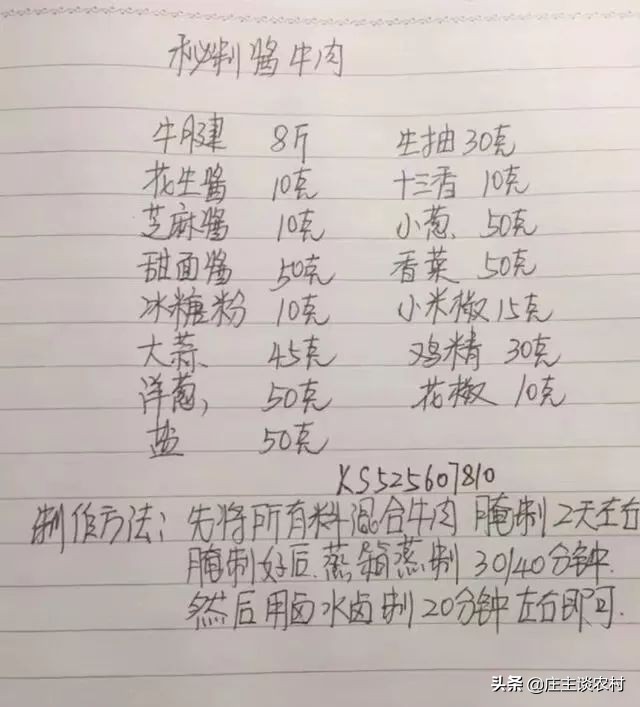 秘制酱牛肉
牛腱 8斤 生抽30克
花生酱 10克 十三香 10克
芝麻酱 10克 小葱、50克
甜面酱 50克 香菜 50克
冰糖粉 10克 小米椒15克
大蒜、 45克 鸡精 30克
洋葱, 50克 花椒 10克
盐 50克
KS525607810
制作方法：先将所有料混合牛肉 腌制2天左右
腌制好后、蒸箱蒸制 30/40分钟.
然后用卤水卤制20分钟左右即可.
头条 @庄主谈农村